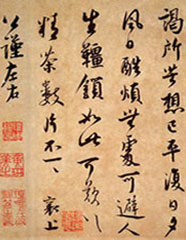 謁所苦想已平復日夕
風日酷煩無處可避人
生韁鎖如此可歎〻
精茶數片不一〻 襄上
公謹左右